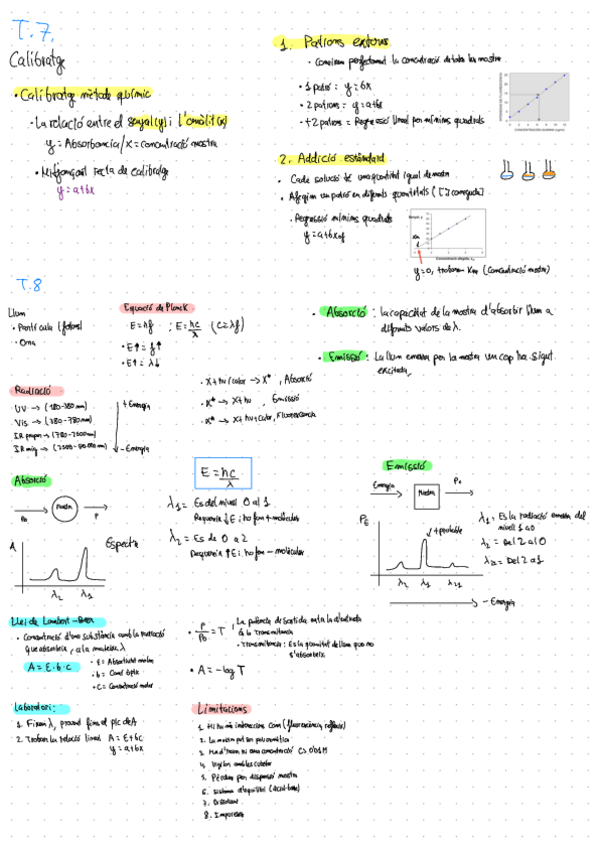 T.7.
Calibratge
• Calibratge mètode químic
• La relació entre el senyal (y) i l'anàlit (x)
y = Absorbancia / x = concentració mostra
• Mitjançant recta de calibratge
y = a+bx
1. Patrons externs
• Coneixem perfectament la concentració de tota la mostra
• 1 patró: y = bx
• 2 patrons: y = a+bx
• +2 patrons = Regressió lineal per mínims quadrats
2. Addició estàndard
• Cada solució té una quantitat igual de mostra
• Afegim un patró en diferents quantitats ([ ] coneguda)
• Regressió mínims quadrats
y = a+bx
y=0, trobarem Xm (concentració mostra)
T.8
Llum
• Partícula (fotons)
• Ona
Equació de Planck
• E=hf ; E = hc/λ (c=λf)
• E↑ = f↑
• E↑ = λ↓
• Absorció : la capacitat de la mostra d'absorbir llum a
diferents valors de λ.
• Emissió : La llum emesa per la mostra un cop ha sigut
excitada.
• X + hν/calor → X*, Absorció
• X* → X + hν, Emissió
• X* → X + hν + calor, Fluorescencia
Radiació
UV → (180-380 nm)
Vis → (380-780nm)
IR propen → (780-2500nm)
IR mig → (2500-50.000 nm)
+ Energia
- Energia
Absorció
Po
Mostra
P
A
Espectre
λ2 λ1
E = hc/λ
λ1 = Es del nivel 0 al 1
Requereix ↓E i ho fan + molècules
λ2 = Es de 0 a 2
Requereix ↑E i ho fan - molècules
Emissió
Energia
Mostra
Pe
PE
+ probable
λ2 λ1 λ21
- Energia
λ1: Es la radiació emesa del
nivell 1 a 0
λ2 = Del 2 al 0
λ21 = Del 2 a 1
Llei de Lambert-Beer
• Concentració d'una substància amb la radiació
que absorbeix, a la mateixa λ
A = ε·b·c
• ε = Absortivitat molar
• b = Camí òptic
• C = Concentració molar
• P/Po = T
• La potència de sortida entre la d'entrada
és la transmitància
• Transmitància: Es la quantitat de llum que no
s'absorbeix
• A = -log T
Laboratori:
1. Fixem λ, provant fins el pic de A
2. Trobar la relació lineal A = ε+bc
y = a+bx
Limitacions
1. Hi ha més interaccions com (fluorescència, reflexió)
2. La mostra pot ser policromàtica
3. Ha d'haver hi una concentració C > 0.01M
4.
5. Pèrdues per dispersió mostra
6. Sistema d'equilibri (àcid-base)
7. Dissolvent
8. Impureses